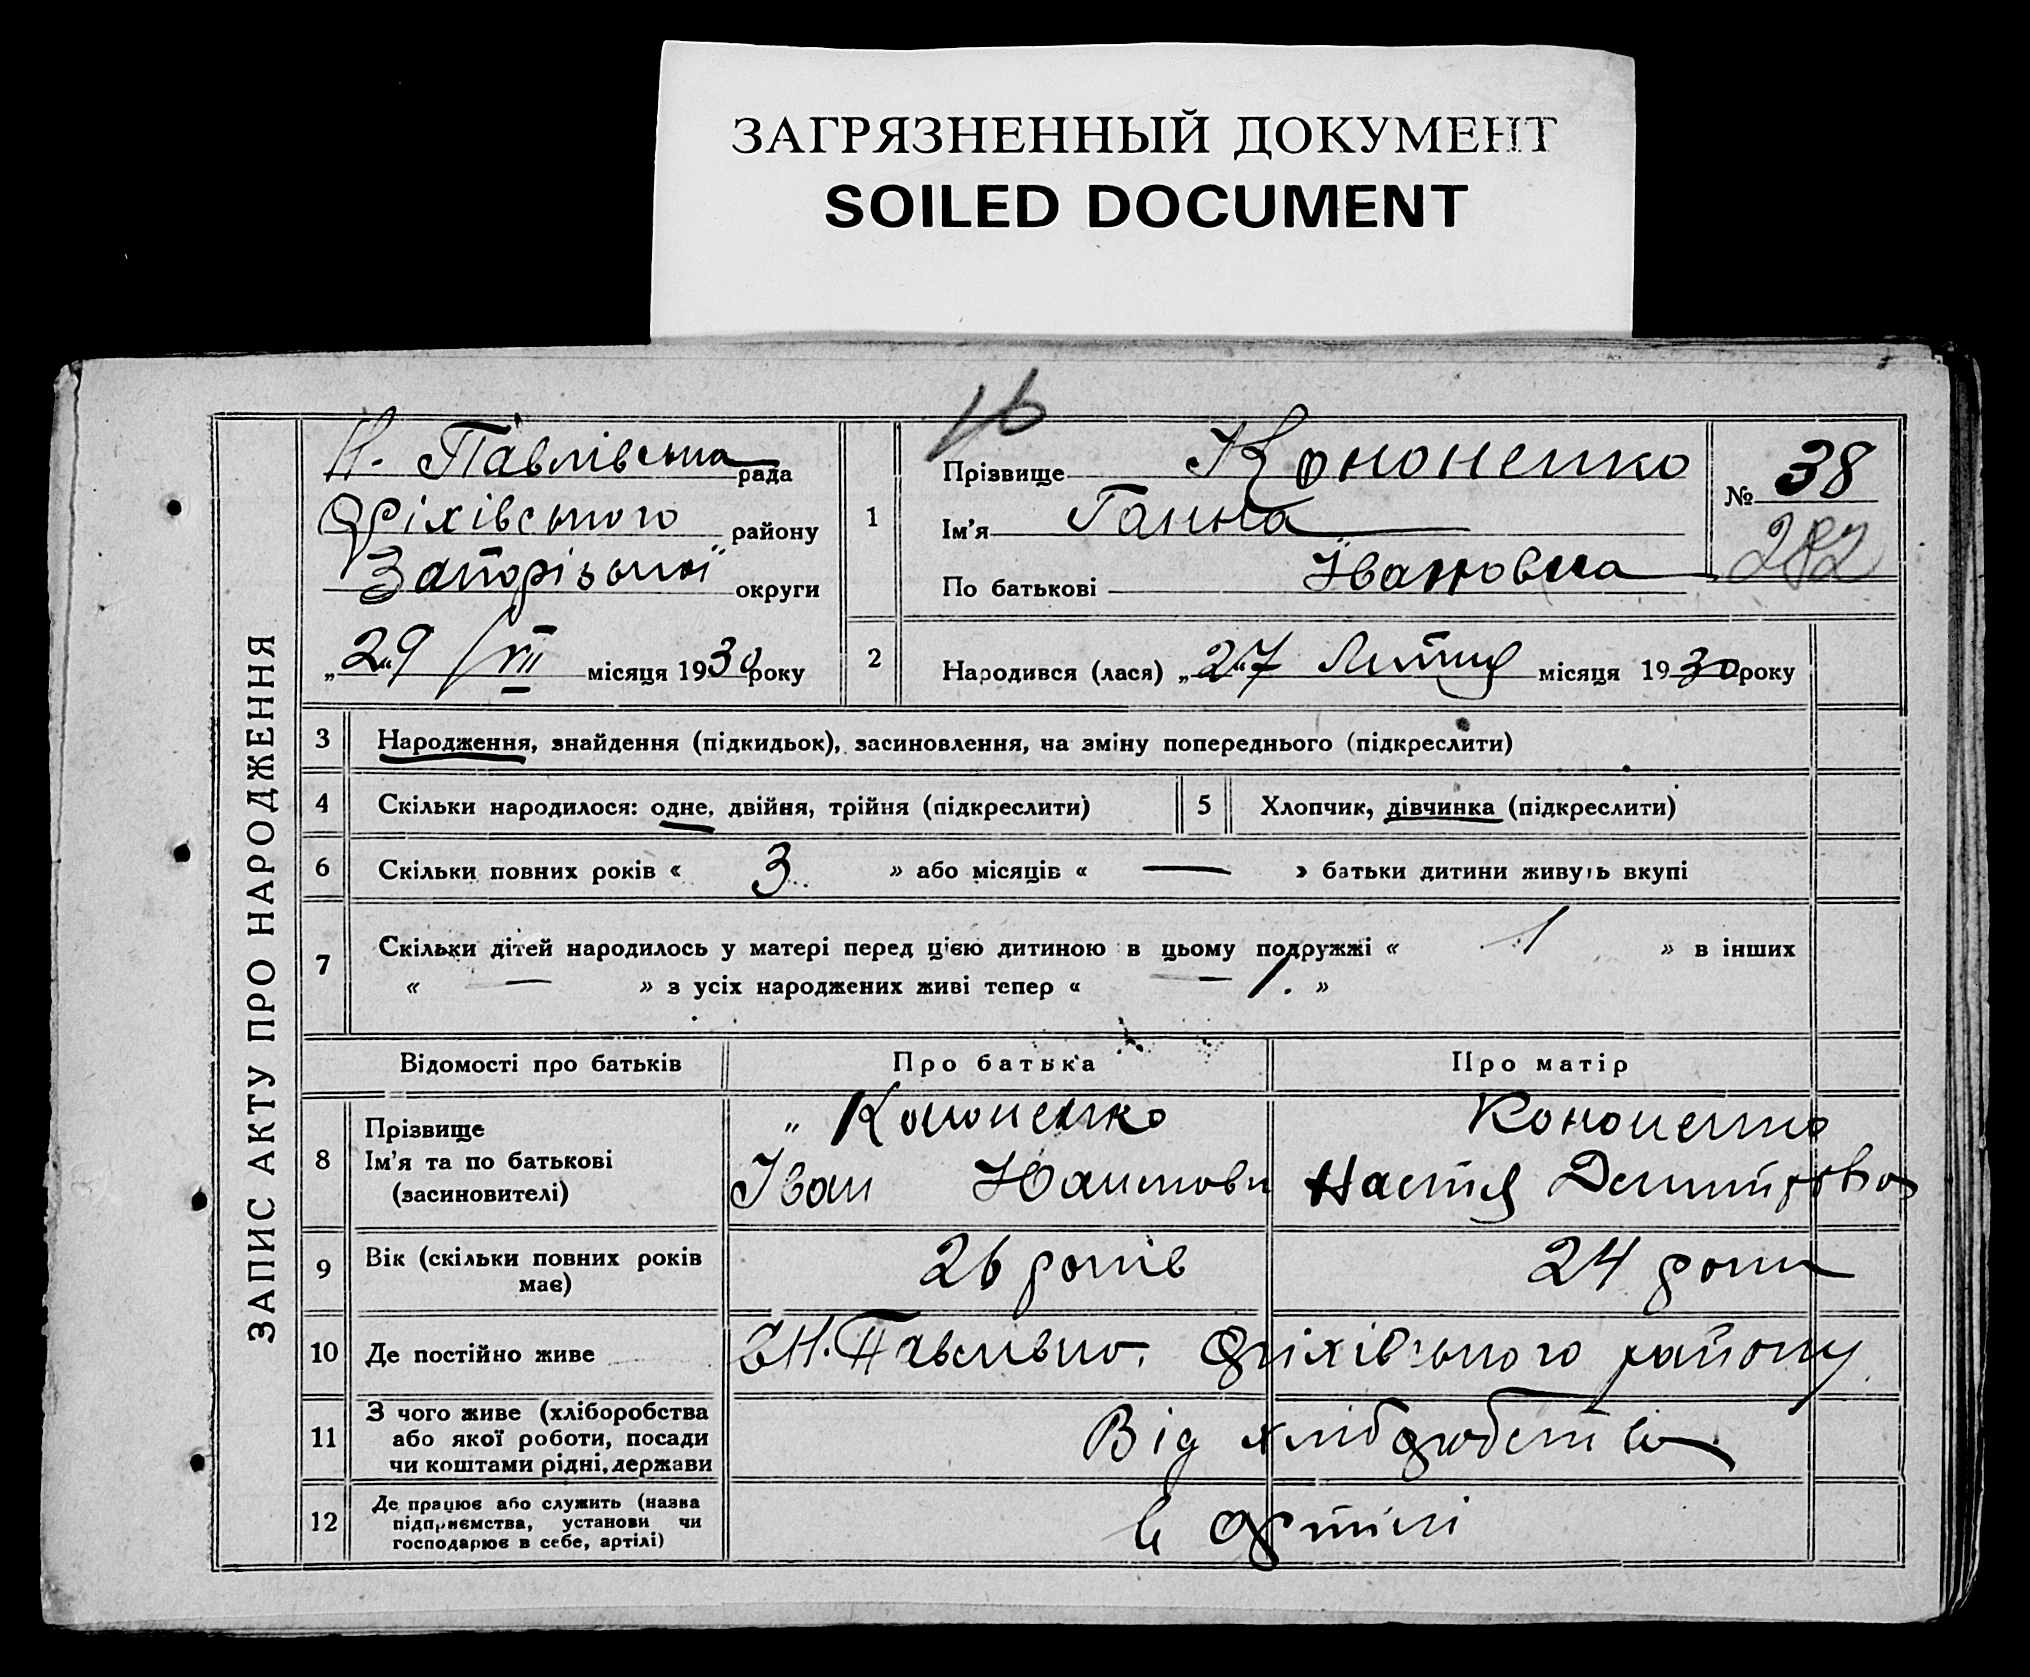 ЗАГРЯЗНЕННЫЙ ДОКУМЕНТ
SOILED DOCUMENT
16
ЗАПИС АКТУ ПРО НАРОДЖЕННЯ
Н. Павлівська рада
Оріхівського району
Запорізької округи
„29“ VII місяця 1930 року
1 Прізвище Кононенко
Ім'я Ганна
По батькові Івановна
№ 38
282
2 Народився (лася) „27“ Липня місяця 1930 року
3 Народження, знайдення (підкидьок), засиновлення, на зміну попереднього (підкреслити)
4 Скільки народилося: одне, двійня, трійня (підкреслити) 5 Хлопчик, дівчинка (підкреслити)
6 Скільки повних років « 3 » або місяців « — » батьки дитини живуть вкупі
7 Скільки дітей народилось у матері перед цією дитиною в цьому подружжі « 1 » в інших
« — » з усіх народжених живі тепер « — 1. »
Відомості про батьків Про батька Про матір
8 Прізвище
Ім'я та по батькові
(засиновителі)
Кононенко
Іван
Кононенко
Настя Демитровна
9 Вік (скільки повних років
має)
26 років
24 роки
10 Де постійно живе
Н. Павлівно. Оріхівського району
11 З чого живе (хліборобства
або якої роботи, посади
чи коштами рідні, держави
Від хліборобства
12 Де працює або служить (назва
підприємства, установи чи
господарює в себе, артілі)
в артілі